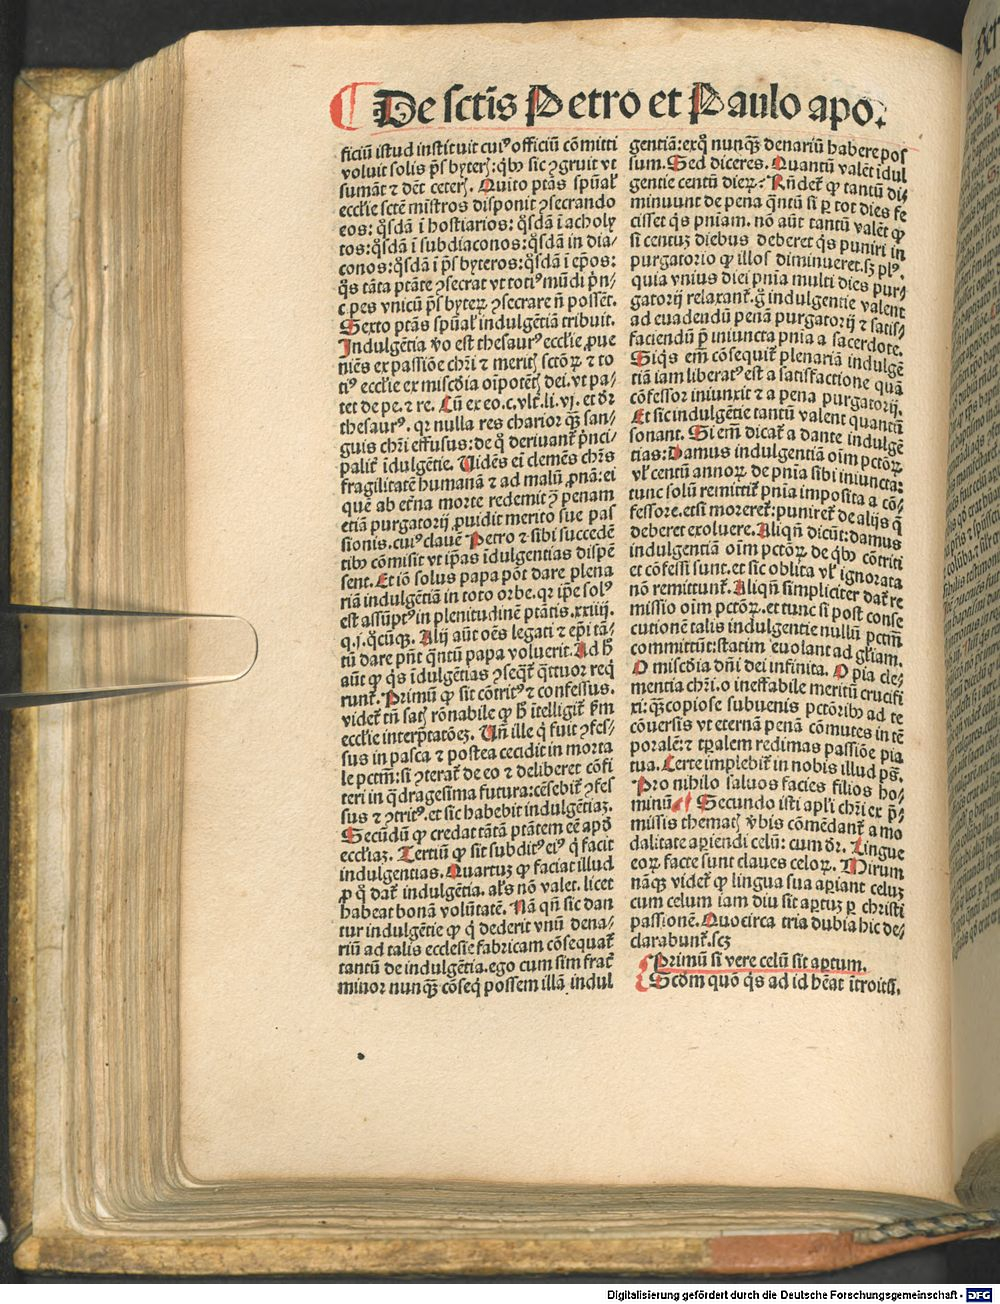 De sctis Petro et Paulo apo.
ficiū istud instituit cuiꝰ officiū cōmitti
voluit solis p̄sbyterꝭ: qͥbꝰ sic ꝯgruit vt
sumāt ⁊ dēt ceterꝭ. Quito ptās spūal̓
eccl̓ie sctē mīstros disponit ꝯsecrando
eos: qͦsdā ī hostiarios: qͦsdā ī acholy
tos: qͦsdā ī subdiaconos: qͦsdā in dia/
conos: qͦsdā ī p̄sbyteros: qͦsdā ī ep̄os:
qͦs tāta ptāte ꝯsecrat vt totiꝰ mūdi p̓n/
cipes vnicū p̄sbyteꝝ ꝯsecrare n̄ possēt.
Sexto ptās spūal̓ indulgētiā tribuit.
Indulgētia v̓o est thesaurꝰ eccl̓ie ꝓue
niēs ex passiōe chr̄i ⁊ meritꝭ sctōꝝ ⁊ to
tiꝰ eccl̓ie ex mīscd̓ia oīpotētꝭ dei. vt pa/
tet de pe. ⁊ re. Cū ex eo. c. vlt̓. li. vj. et dr̄
thesaurꝰ. qr nulla res charior qꝙ san/
guis chr̄i effusus: de qͦ deriuant̓ p̓nci/
palit̓ īdulgētie. Uidēs ei clemēs chr̄s
fragilitatē humanā ⁊ ad malū ꝓnā: ei
quē ab et̓na morte redemit ꝫ penam
etiā purgatorij ꝓuidit merito sue pas
sionis. cuiꝰ clauē Petro ⁊ sibi succedē
tibꝰ cōmisit vt ip̄as īdulgentias dispē
sent. Et iō solus papa pōt dare plena
riā indulgētiā in toto orbe. qr ip̄e solꝰ
est assūptꝰ in plenitudinē ptātis. xxiiij.
q. j. qͦcūqꝫ. Alij aūt oēs legati ⁊ ep̄i tā/
tū dare pn̄t qͣntū papa voluerit. Ad h̓
aūt ꝙ qͥs īdulgētias ꝯseqͣt̓ qͣttuor reqͥ
runt̓. Primū ꝙ sit cōtritꝰ ⁊ confessus.
videt̓ tn̄ satꝭ rōnabile ꝙ h̓ ītelligit̓ ẜm
eccl̓ie interp̄tatōeꝫ. Un̄ ille qͥ fuit ꝯfes/
sus in pasca ⁊ postea cecidit in morta
le pctm̄: si ꝯterat̓ de eo ⁊ deliberet cōfi
teri in qͣdragesima futura: cēsebit̓ ꝯfes
sus ⁊ ꝯtritꝰ. et sic habebit indulgētiaꝫ.
Secūdū ꝙ credat tātā ptātem eē apd̓
eccl̓iaꝫ. Tertiū ꝙ sit subditꝰ eiꝰ qͥ facit
indulgentias. Quartuꝫ ꝙ faciat illud
ꝓ qͦ dat̓ indulgētia. al̓s nō valet. licet
habeat bonā volūtatē. Nā qn̄ sic dan
tur indulgētie ꝙ qͥ dederit vnū dena/
riū ad talis ecclesie fabricam cōsequat̓
tantū de indulgētia. ego cum sim frat̓
minor nunqꝙ cōseqͥ possem illā indul
gentiā: ex qͦ nunqꝙ denariū habere pos
sum. Sed diceres. Quantū valēt īdul
gentie centū dieꝝ: Rn̄det̓ ꝙ tantū di/
minuunt de pena qͣntū si ꝑ tot dies fe
cisset qͥs pn̄iam. nō aūt tantū valēt ꝙ
si centuꝫ diebus deberet qͥs puniri in
purgatorio ꝙ illos diminueret. sꝫ plꝰ.
quia vnius diei pn̄ia multi dies pur/
gatorij relaxant̓. g̊ indulgentie valent
ad euadendū penā purgatorij ⁊ satis/
faciendū p̄ iniuncta pn̄ia a sacerdote.
Si qͥs em̄ cōsequit̓ plenariā indulgē
tiā iam liberatꝰ est a satisfactione quā
cōfessor iniunxit ⁊ a pena purgatorij.
Et sic indulgētie tantū valent quantū
sonant. Si em̄ dicat̓ a dante indulgē
tias: Damus indulgentiā oīm pctōꝝ
vl̓ centū annoꝝ de pn̄ia sibi iniuncta:
tunc solū remittit̓ pn̄ia imposita a cō/
fessore. et si moreret̓: puniret̓ de alijs q̄
deberet exoluere. Aliqn̄ dicūt: damus
indulgentiā oīm pctōꝝ de qͥbꝰ cōtriti
et cōfessi sunt. et sic oblita vl̓ ignorata
nō remittunt̓. Aliqn̄ simpliciter dat̓ re
missio oīm pctōꝝ. et tunc si post conse
cutionē talis indulgentie nullū pctm̄
committūt: statim euolant ad gl̓iam.
O mīscd̓ia dn̄i dei infinita. O pia cle/
mentia chr̄i. o ineffabile meritū crucifi
xi: qꝙ copiose subuenis pctōribꝰ ad te
cōuersis vt eternā penā cōmutes in tē
poralē: ⁊ tp̄alem redimas passiōe pia
tua. Certe implebit̓ in nobis illud ps̄.
Pro nihilo saluos facies filios ho/
minū. Secundo isti apl̓i chr̄i ex p̄/
missis thematꝭ v̓bis cōmēdant̓ a mo
dalitate aꝑiendi celū: cum dr̄. Lingue
eoꝝ facte sunt claues celoꝝ. Mirum
nāqꝫ videt̓ ꝙ lingua sua aꝑiant celuꝫ
cum celum iam diu sit aꝑtuꝫ ꝑ christi
passionē. Quocirca tria dubia hic de/
clarabunt̓. scꝫ
Primū si vere celū sit aꝑtum.
Scd̓m quō qͥs ad id hēat ītroitū.
Digitalisierung gefördert durch die Deutsche Forschungsgemeinschaft - DFG